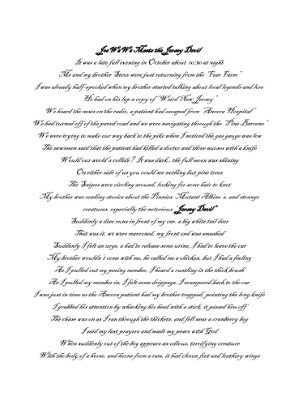 Joe WWWs Meets the Jersey Devil
It was a late fall evening in October about 10:30 at night
Me and my brother Steve were just returning from the "Fear Farm"
I was already half-spooked when my brother started talking about local legends and lore
He had on his lap a copy of "Weird New Jersey"
We heard the news on the radio, a patient had escaped from "Ancora Hospital"
We had turned off of the paved road and we were navigating through the "Pine Barrens"
We were trying to make our way back to the pike when I noticed the gas gauge was low
The newsmen said that the patient had killed a doctor and three nurses with a knife
Would our world's collide? It was dark, the full moon was shining
On either side of you could see nothing but pine trees
The Snipes were circling around, looking for some hair to knot
My brother was reading stories about the Pineies, Mutant Albino's, and strange
creatures, especially the notorious "Jersey Devil"
Suddenly a deer runs in front of my car, a big white tail deer
That was it, we were marooned, my front end was smashed
Suddenly I felt an urge, a had to release some urine, I had to leave the car
My brother wouldn't come with me, he called me a chicken, but I had a feeling
As I pulled out my peeing member, I heard a rustling in the thick brush
As I pulled my member in, I felt some drippage, I scampered back to the car
I was just in time as the Ancora patient had my brother trapped, pointing the long knife
I grabbed his attention by whacking his head with a stick, it pissed him off
The chase was on as I ran through the thickets, and fell near a cranberry bog
I said my last prayers and made my peace with God
When suddenly out of the bog appears an odious, terrifying creature
With the body of a horse, and horns from a ram, it had cloven feet and leathery wings